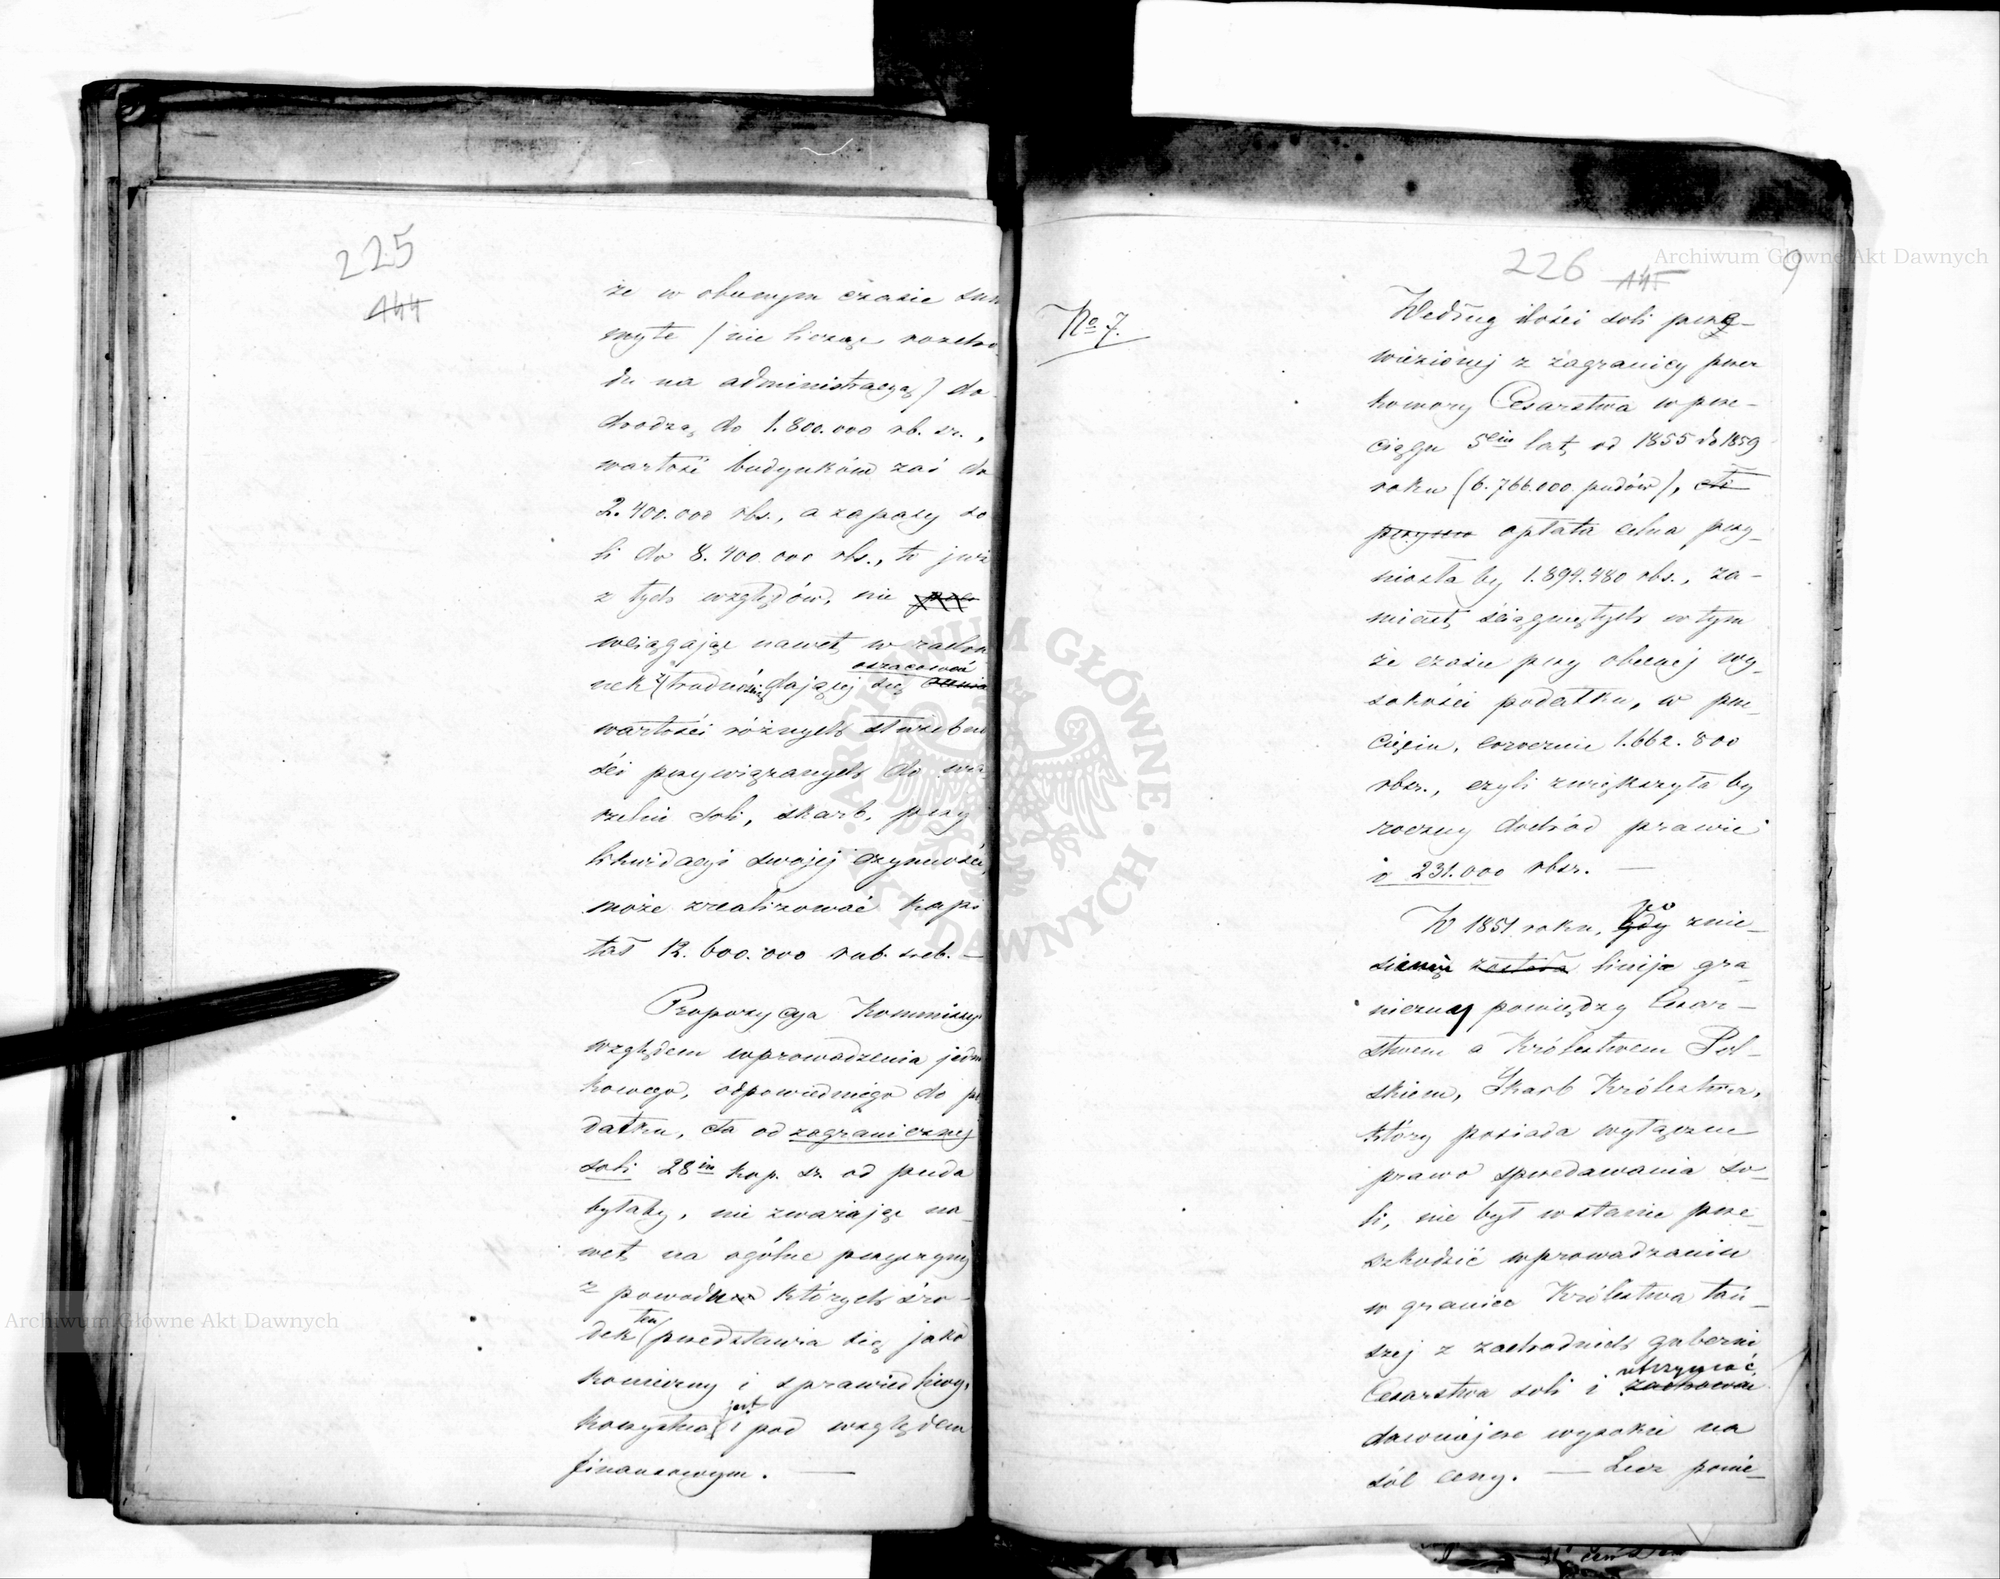 225
144
że w obecnym czasie sum
myte / nie licząc rozcho
du na administracyą / do
chodzą do 1.800.000 rb. sr.,
wartość budynków zaś do
2.400.000 rbs., a zapasy so
li do 8.400.000 rbs., to już
z tych względów, nie
wciągając nawet w rachu
oszacować
nek z trudnością dającej się
wartości różnych służebno
ści przywiązanych do wa
rzelni soli, skarb, przy
likwidacyi swojej czynności,
może zrealizować kapi
tał 12.600.000 rub. sreb. —
Propozycya Kommissyi
względem wprowadzenia jedna
kowego, odpowiedniego do po
datku, cła od zagranicznej
soli 28iu kop. sr. od puda
byłaby, nie zważając na-
wet na ogólne przyczyny
z powodu których śro-
ten
dek przedstawia się jako
konieczny i sprawiedliwy,
jest
korzystna i pod względem
finansowym. —
226 145 9
No 7.
Według ilości soli przy-
wiezionej z zagranicy przez
komory Cesarstwa w prze-
ciągu 5ciu lat, od 1855 do 1859
roku (6.766.000 pudów), cło
opłata celna przy-
niosła by 1.894.480 rbs., za-
miast ściągniętych w tym
że czasie przy obecnej wy-
sokości podatku, w prze-
cięciu, corocznie 1.662.800
rbsr., czyli zwiększyła by
roczny dochód prawie
o 231.000 rbsr. —
po
W 1851 roku, gdy znie-
sieniu została linije gra-
nicznej pomiędzy Cesar-
stwem a Królestwem Pol-
skiem, Skarb Królestwa,
który posiada wyłączne
prawo sprzedawania so-
li, nie był w stanie prze-
szkodzić wprowadzaniu
w granice Królestwa tań-
szej z zachodnich gubernii
utrzymać
Cesarstwa soli i zachować
dawniejsze wysokie na
sól ceny. — Lecz ponie-
Archiwum Główne Akt Dawnych
Archiwum Główne Akt Dawnych
ARCHIWUM GŁÓWNE · AKT DAWNYCH ·